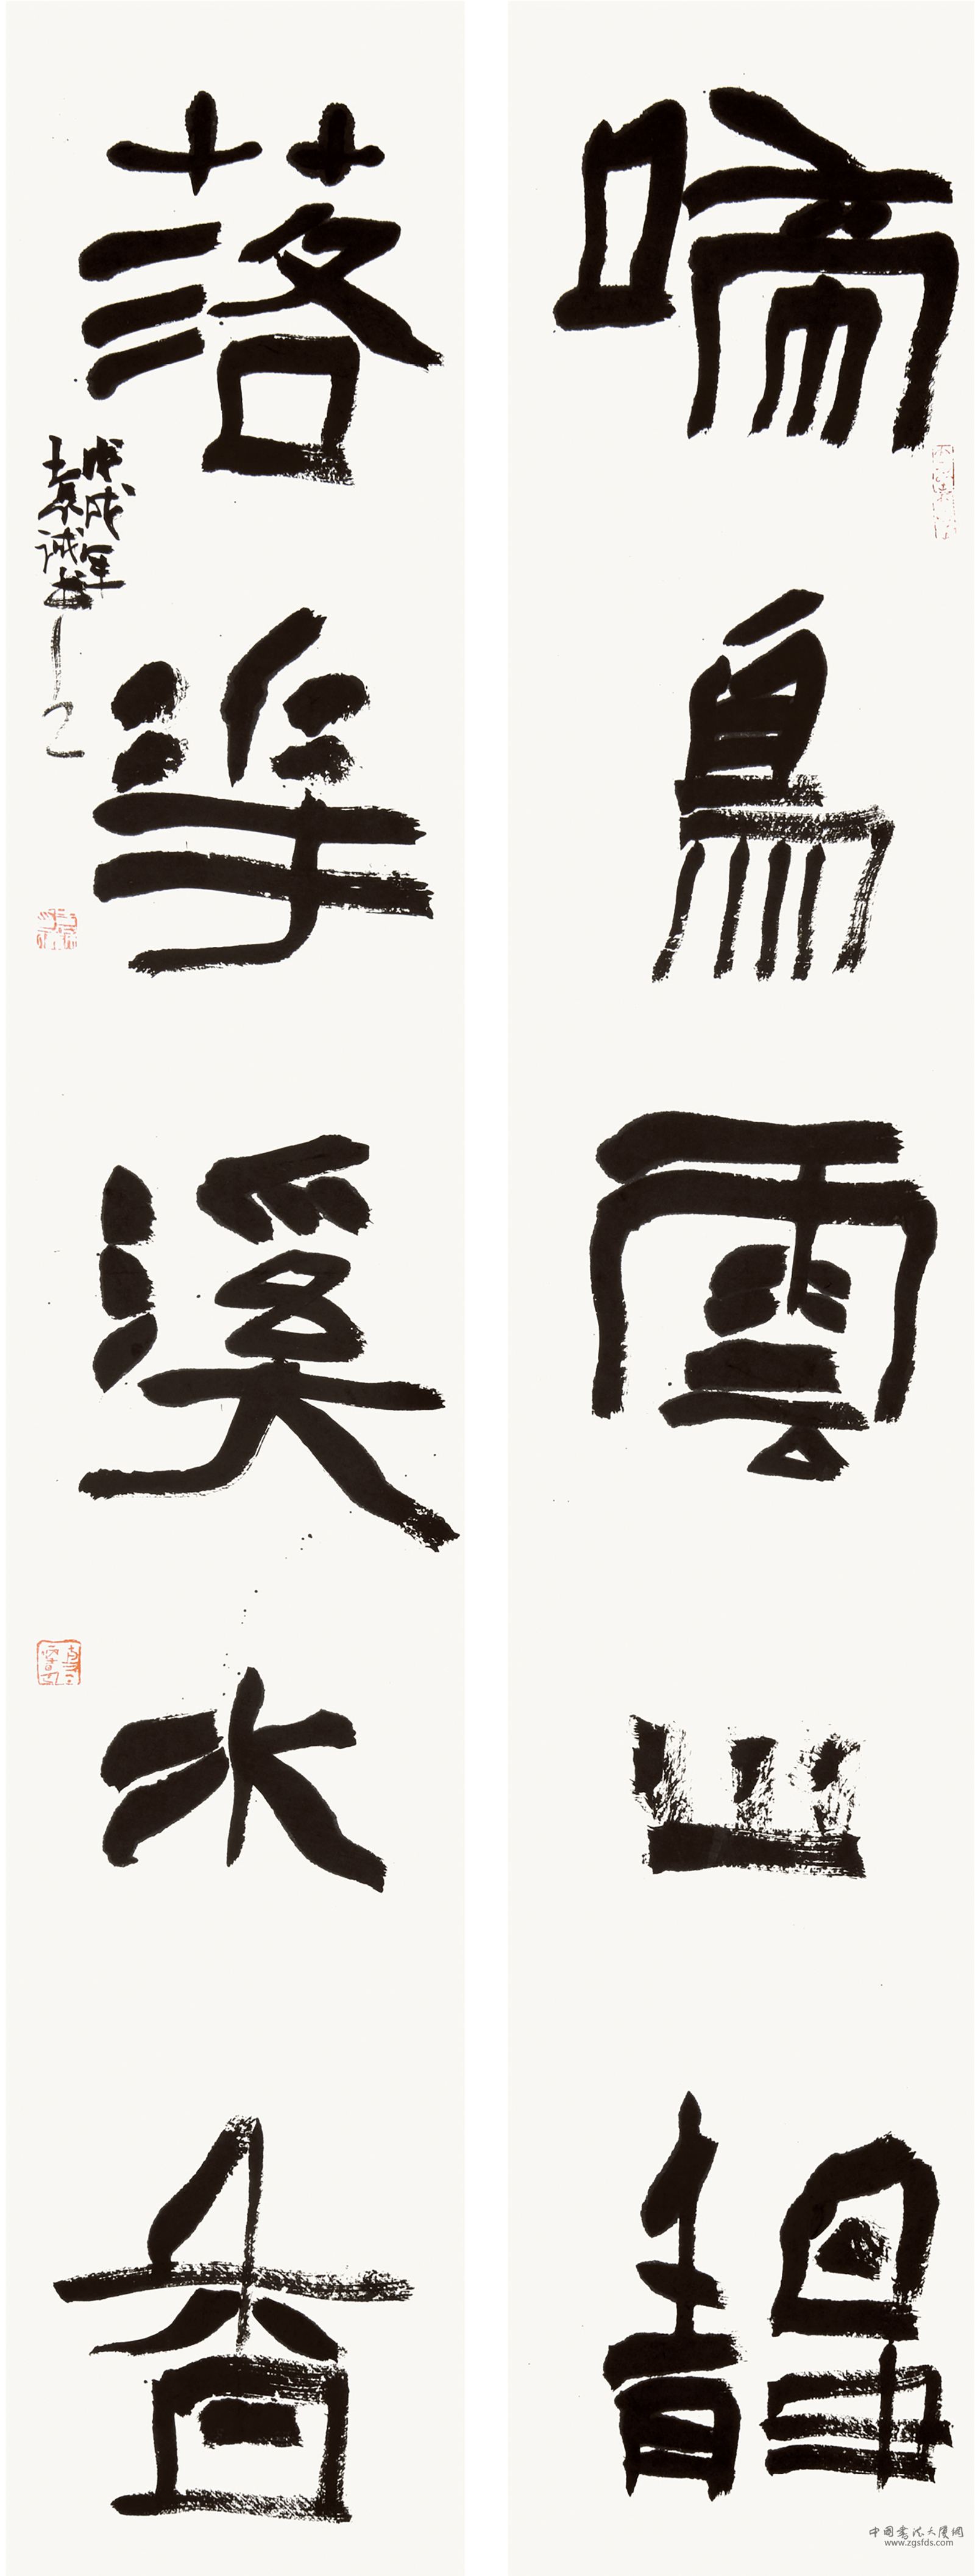 啼鳥雲山靜
落花溪水香
戊戌年
士誠書
中國書法大廈網
www.zgsfds.com